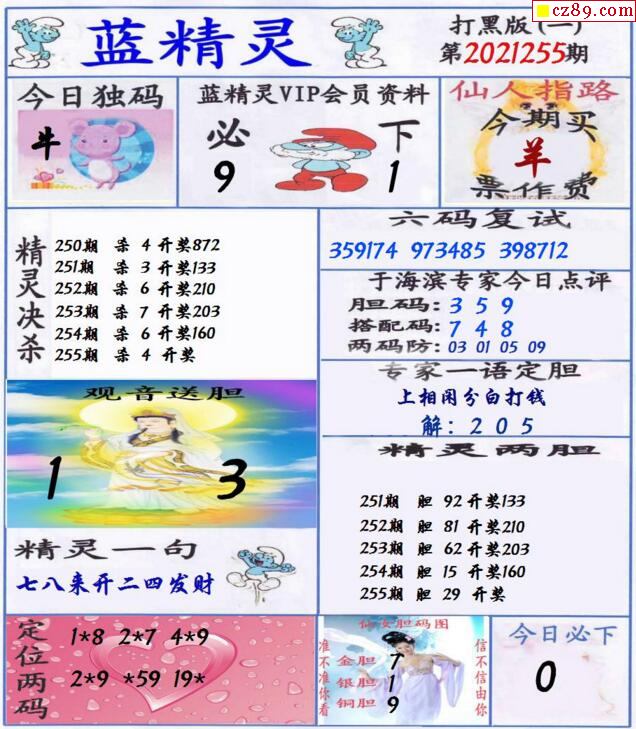 cz89.com
蓝精灵
打黑版(一)
第2021255期
今日独码
牛
蓝精灵VIP会员资料
必 下
9 1
仙人指路
今期买
羊
票作费
精灵决杀
250期 杀 4 开奖872
251期 杀 3 开奖133
252期 杀 6 开奖210
253期 杀 7 开奖203
254期 杀 6 开奖160
255期 杀 4 开奖
六码复试
359174 973485 398712
于海滨专家今日点评
胆码: 3 5 9
搭配码: 7 4 8
两码防: 03 01 05 09
专家一语定胆
上相闲分白打钱
解: 2 0 5
观音送胆
1 3
精灵两胆
251期 胆 92 开奖133
252期 胆 81 开奖210
253期 胆 62 开奖203
254期 胆 15 开奖160
255期 胆 29 开奖
精灵一句
七八来开二四发财
定位两码
1*8 2*7 4*9
2*9 *59 19*
仙女胆码图
准不准你看
金胆 7
银胆 1
铜胆 9
信不信由你
今日必下
0